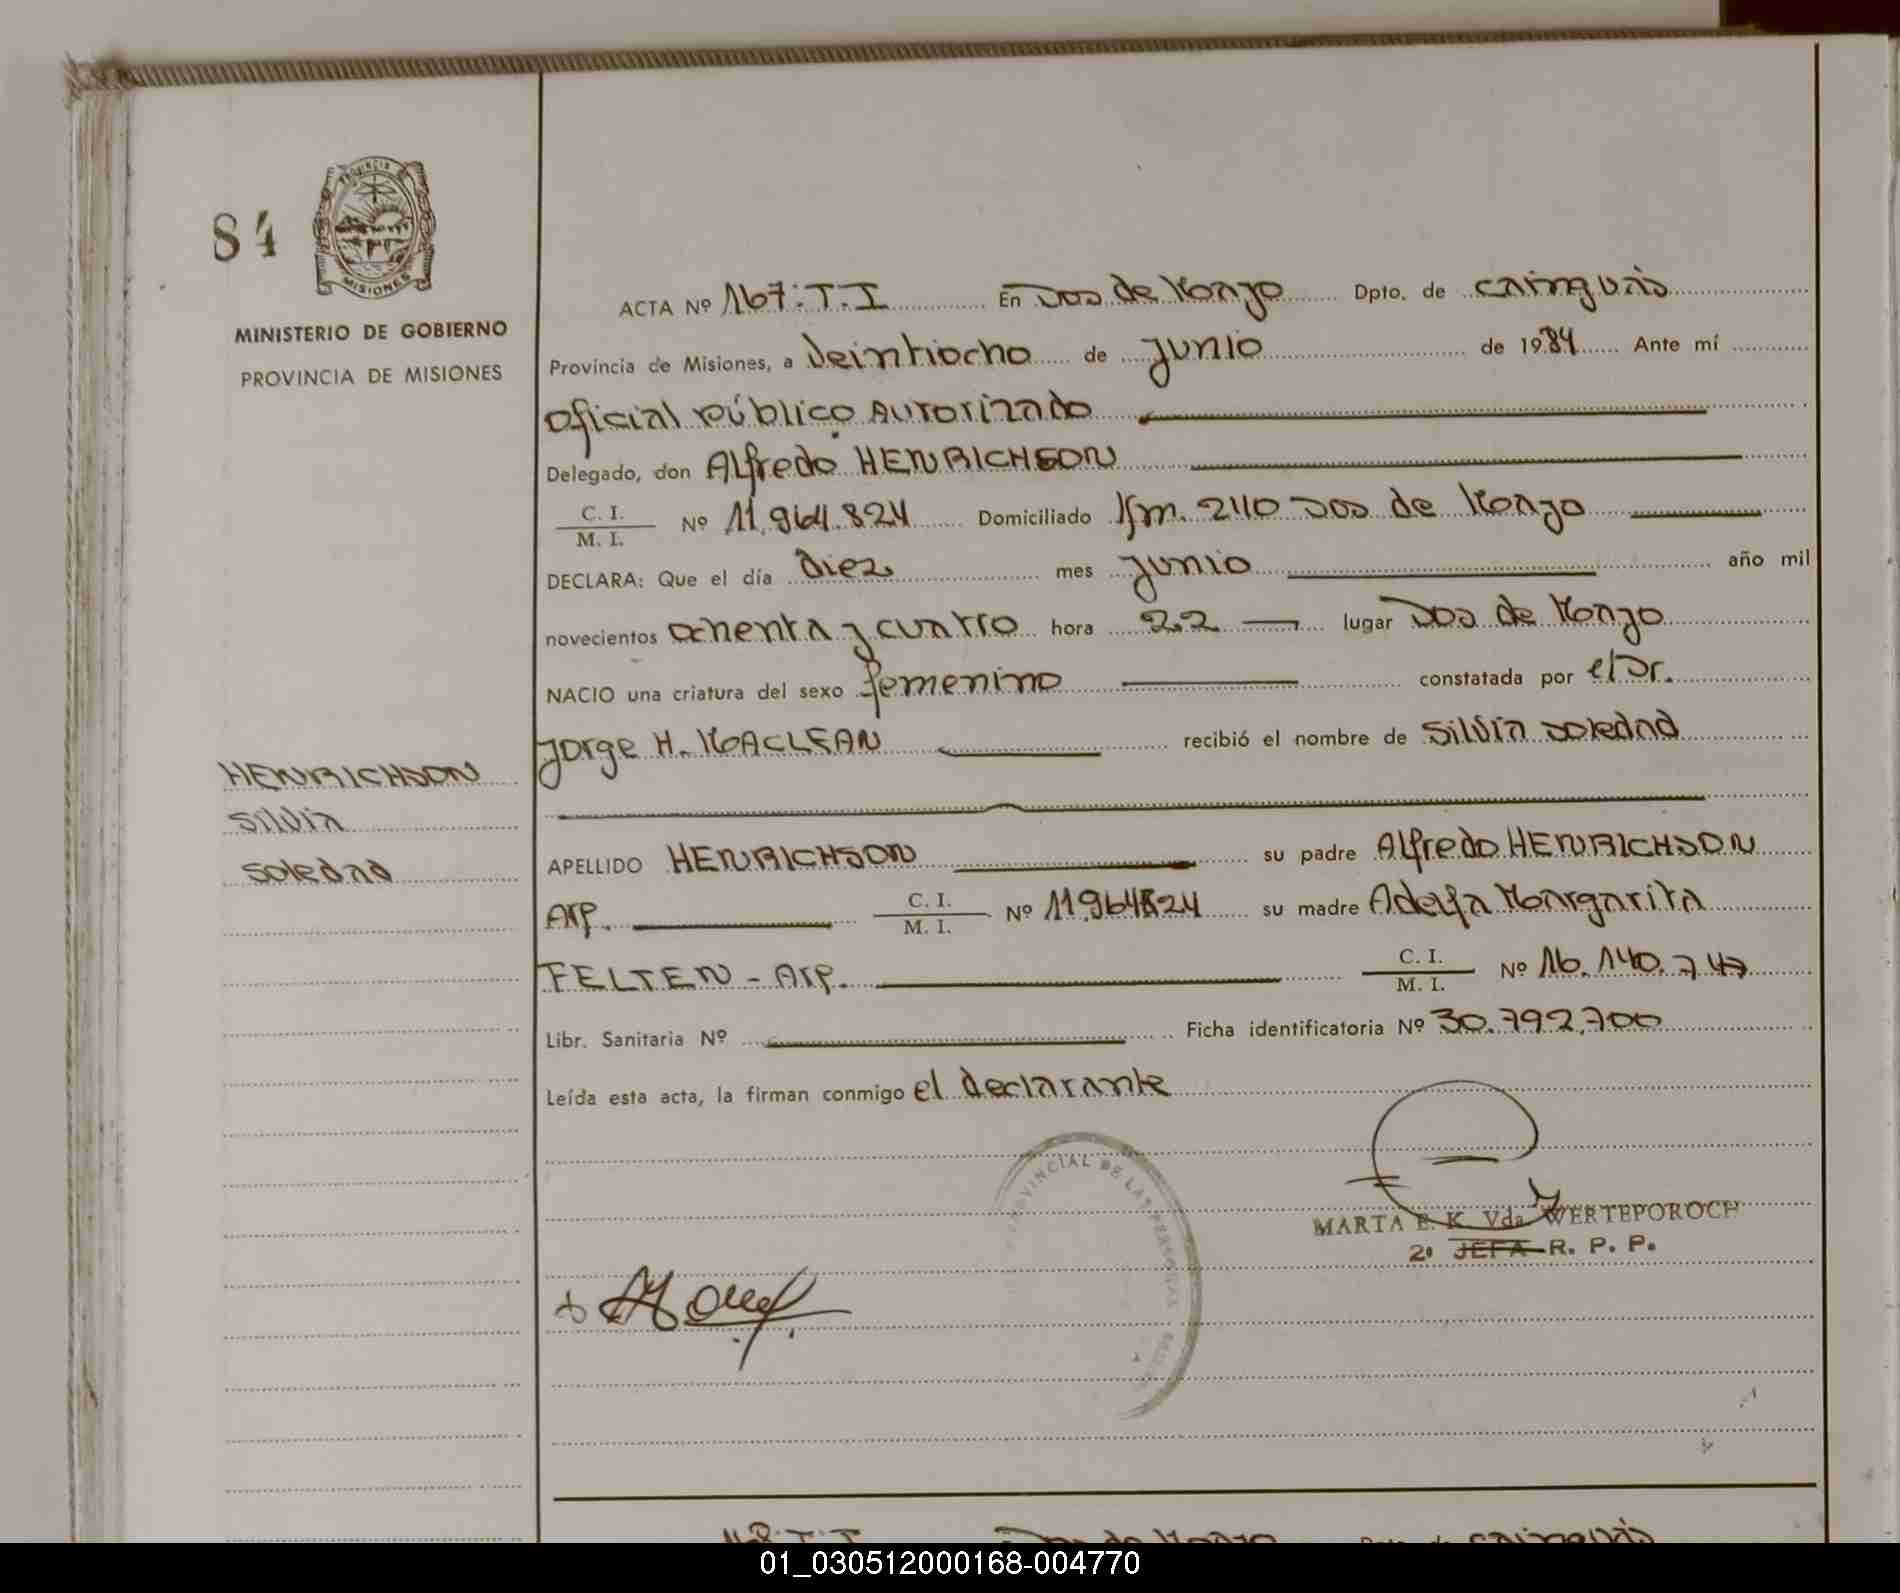 84
PROVINCIA
MISIONES
MINISTERIO DE GOBIERNO
PROVINCIA DE MISIONES
ACTA Nº 167. T. I En Dos de Mayo Dpto. de Cainguás
Provincia de Misiones, a Veintiocho de Junio de 1984 Ante mí
Oficial Público Autorizado
Delegado, don Alfredo HENRICHSON
C. I.
M. I.
Nº 11.964.824 Domiciliado Km. 240 Dos de Mayo
DECLARA: Que el día diez mes Junio año mil
novecientos ochenta y cuatro hora 22 lugar Dos de Mayo
NACIO una criatura del sexo femenino constatada por el Dr.
Jorge H. MACLEAN recibió el nombre de Silvia Soledad
HENRICHSON
Silvia
Soledad
APELLIDO HENRICHSON su padre Alfredo HENRICHSON
Arg. C. I.
M. I.
Nº 11964824 su madre Adelfa Margarita
FELTEN - Arg. C. I.
M. I.
Nº 16.140.747
Libr. Sanitaria Nº Ficha identificatoria Nº 30.792.700
Leída esta acta, la firman conmigo el declarante
PROVINCIAL DE LAS PERSONAS
MARTA E. K. Vda. WERTEPOROCH
2º JEFA R. P. P.
168. T. I Dos de Mayo Dpto. de Cainguás
01_030512000168-004770